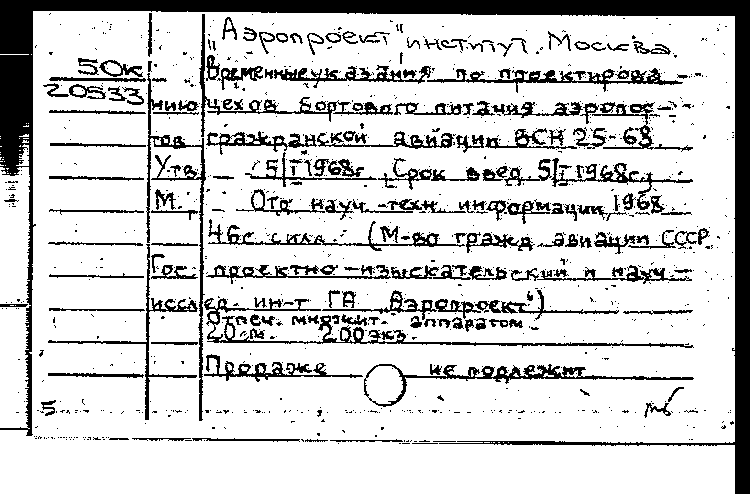 „Аэропроект" институт. Москва.
50к Временные указания по проектирова-
20533 нию цехов бортового питания аэропор-
тов гражданской авиации ВСН 25-68.
Утв. 5/I 1968г. Срок введ. 5/I 1968г.,
М. Отд науч.-техн. информации, 1968.
46с. силл. (М-во гражд. авиации СССР.
Гос. проектно-изыскательский и науч.-
исслед. ин-т ГА „Аэропроект")
Отпеч. множит. аппаратом.
20 см. 200 экз.
Продаже не подлежит
5